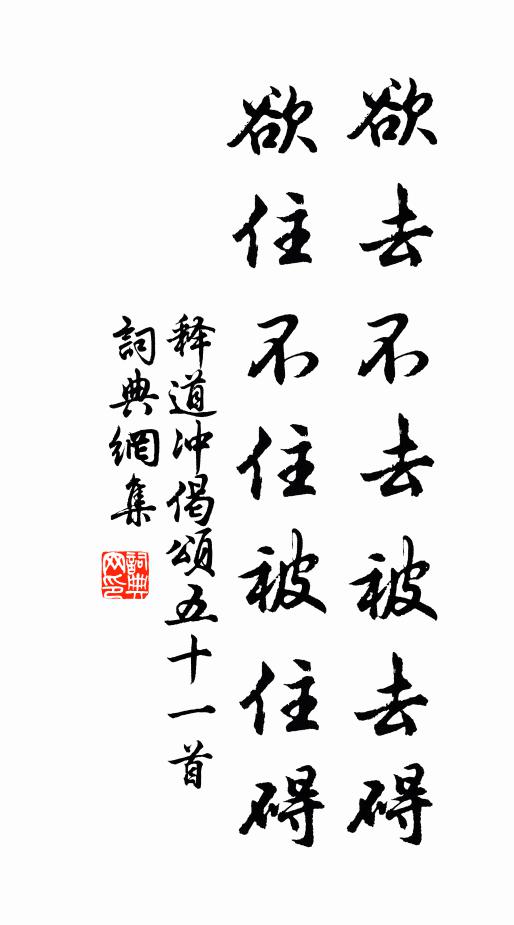 欲去不去被去碍
欲住不住被住碍
释道冲偈颂五十一首
詞典網集
詞典
网印